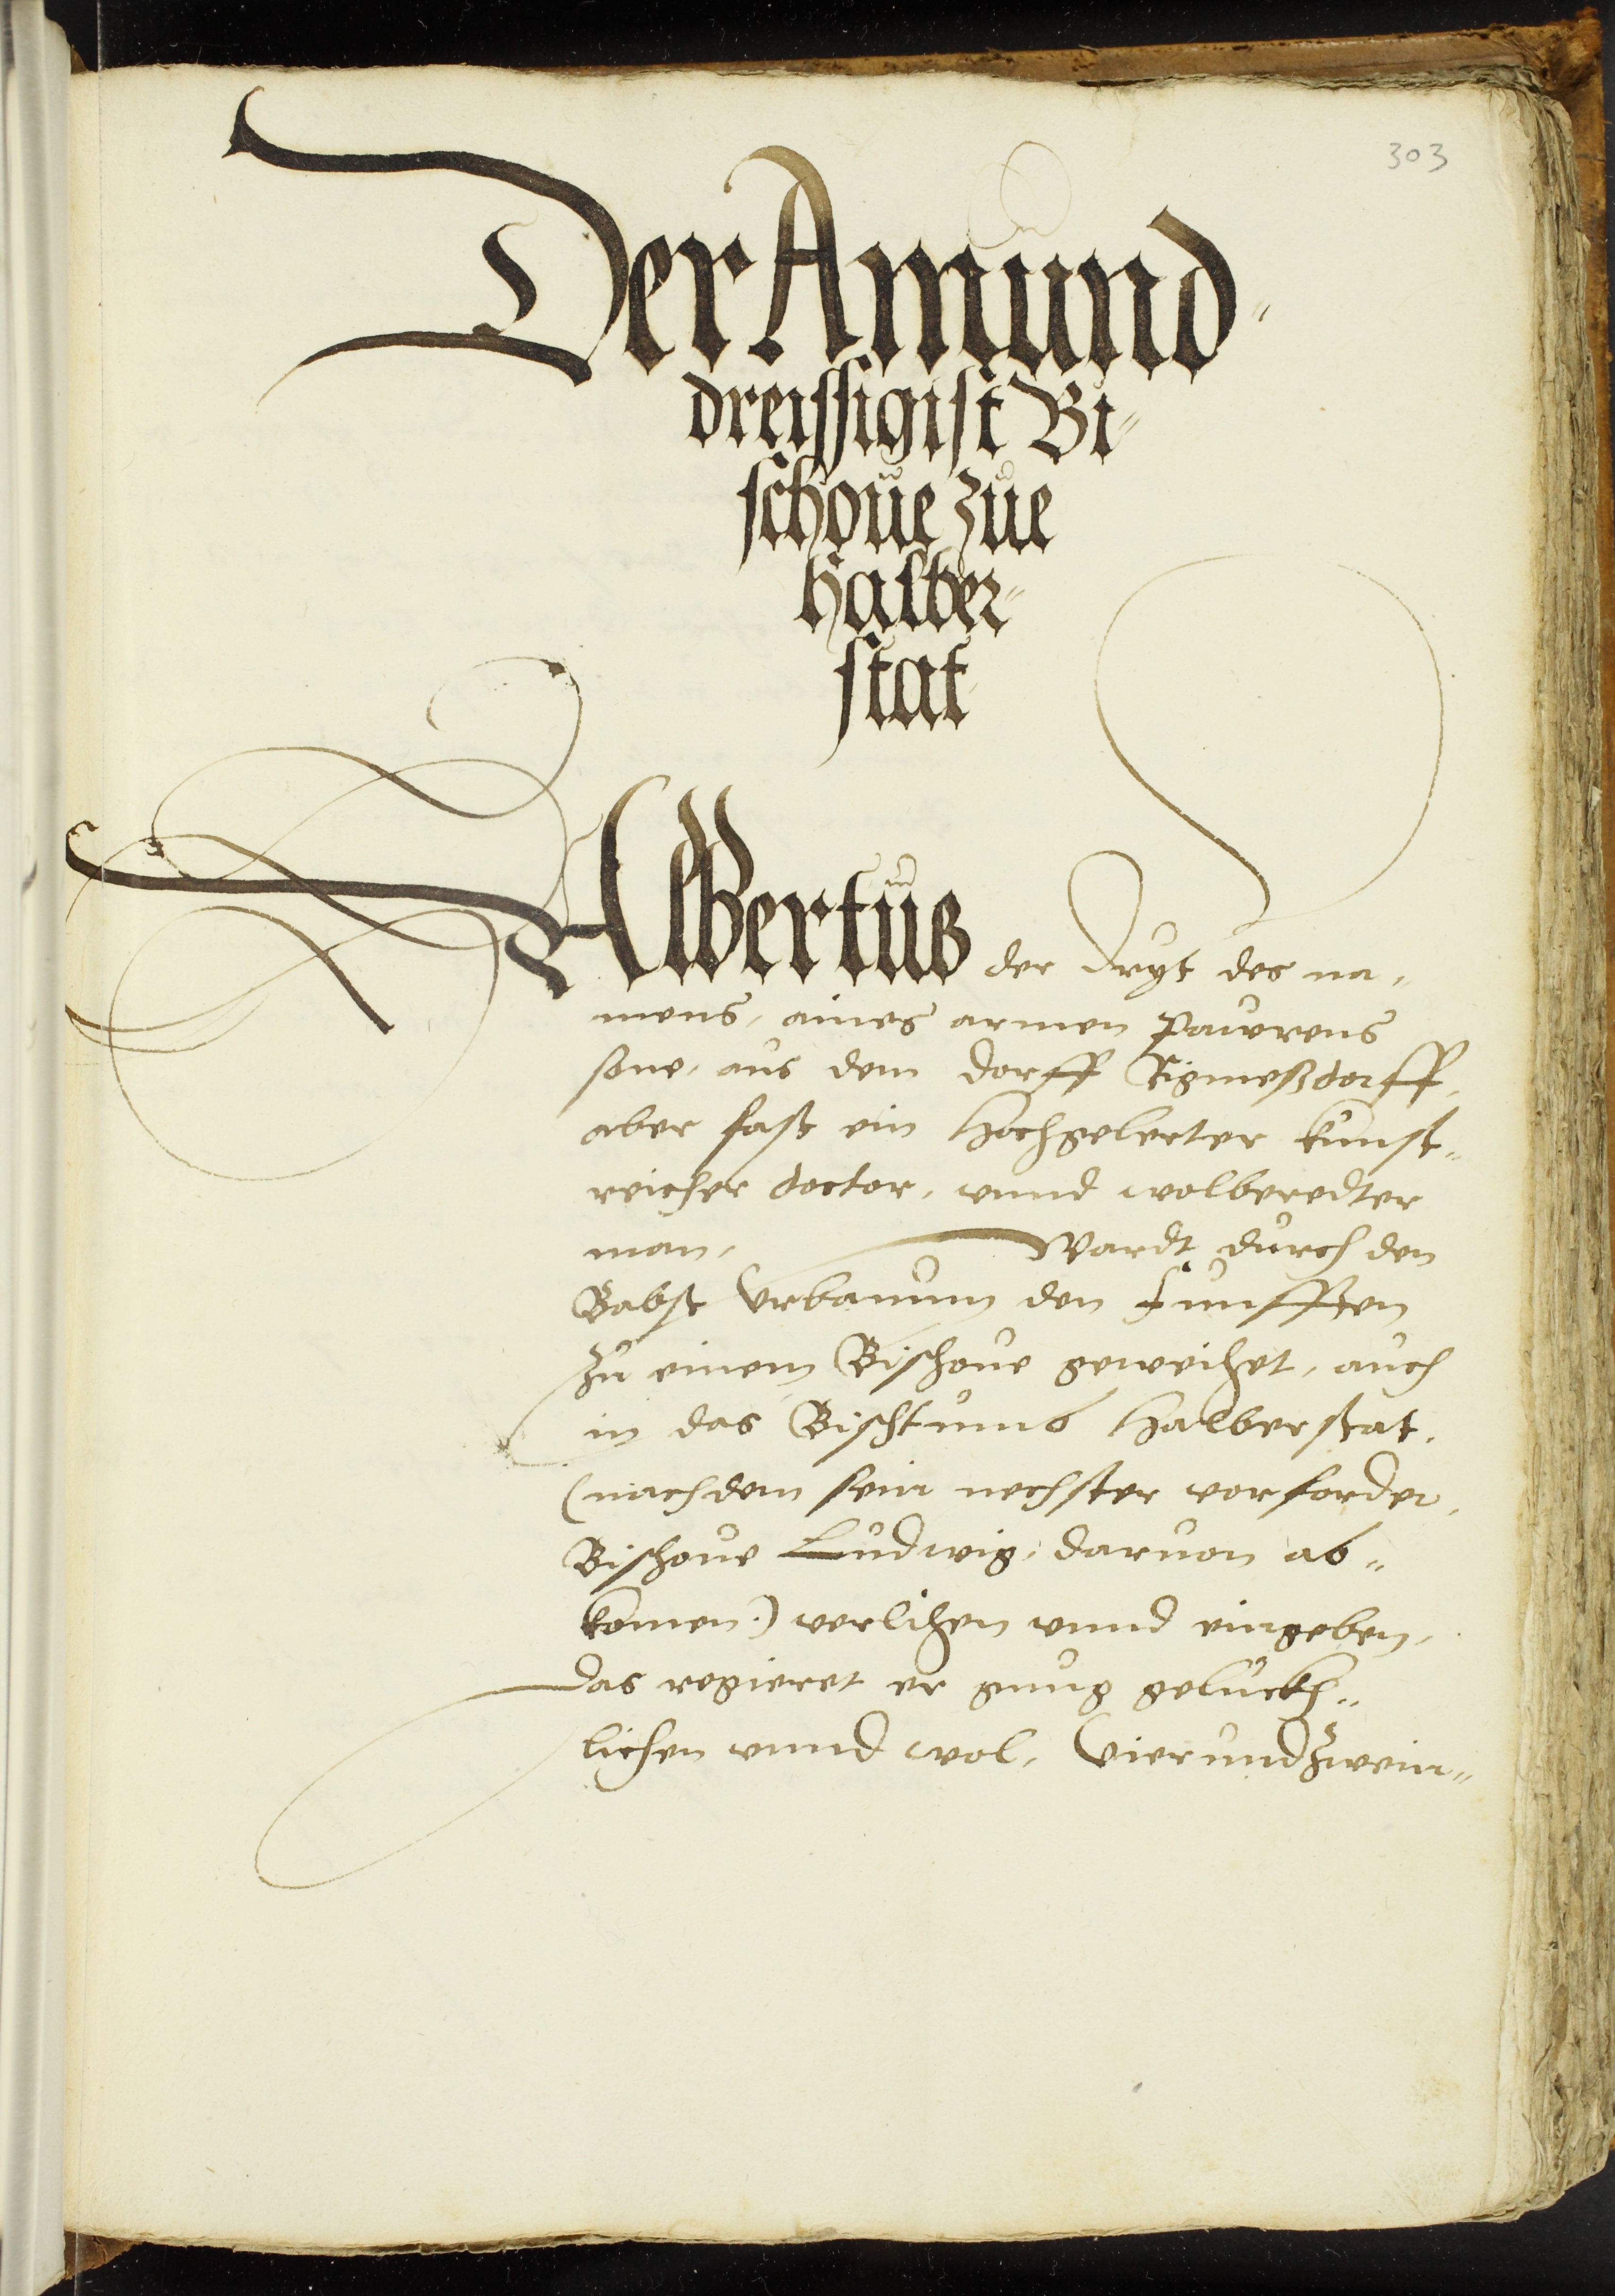 303
Der Amund„
dreissigist Bi„
schoue zue
halber„
stat
Albertus der dryt des na„
mens, aines armen Pawrens
sone, aus dem dorff Rigmeßdorff,
aber fast ein hochgelerter kunst„
reicher doctor, vnnd wolberedter
man, Wardt durch den
Babst Vrbanum den Funfften
zu einem Bischoue geweihet, auch
in das Bischtumb Halberstat,
(nachdem sein nechster vorforder,
Bischoue Ludwig, daruon ab„
komen.) verlihen vnnd eingeben,
das regieret er gnug gelückh„
lichen vnnd wol, Vierundzwein„